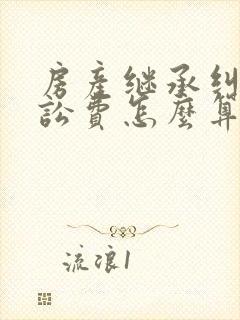 房产继承纠
讼费怎麽算
流浪1